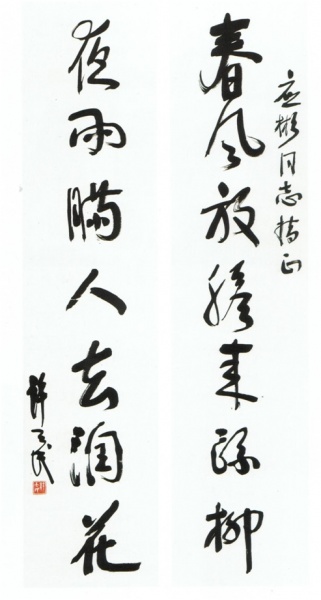 应彬同志指正
春风放膽来梳柳
夜雨瞒人去润花